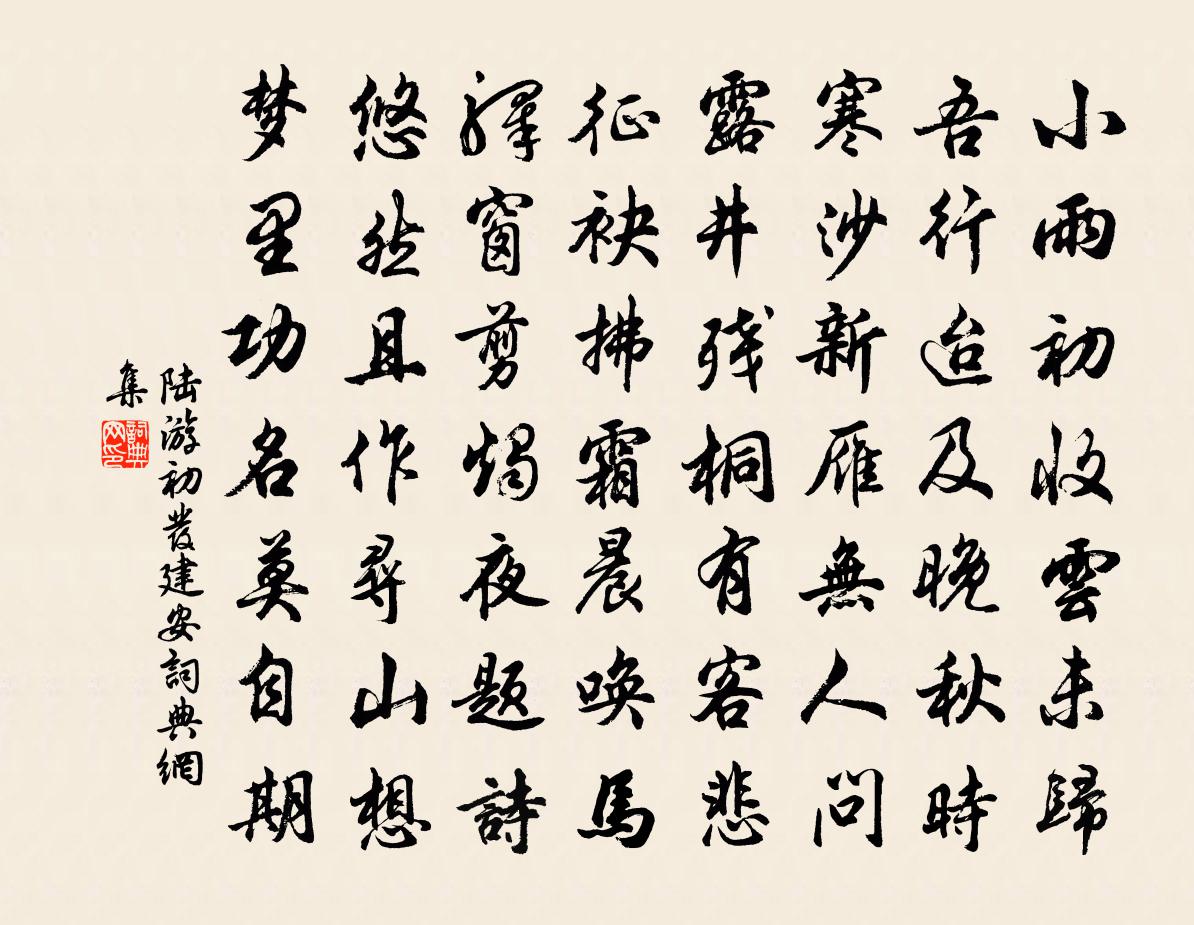 小雨初收雲未歸
吾行迨及晚秋時
寒沙新雁無人問
露井残桐有客悲
征袂拂霜晨唤馬
驿窗剪燭夜题詩
悠然且作尋山想
梦里功名莫自期
陆游初發建安詞典網
集
詞典網印